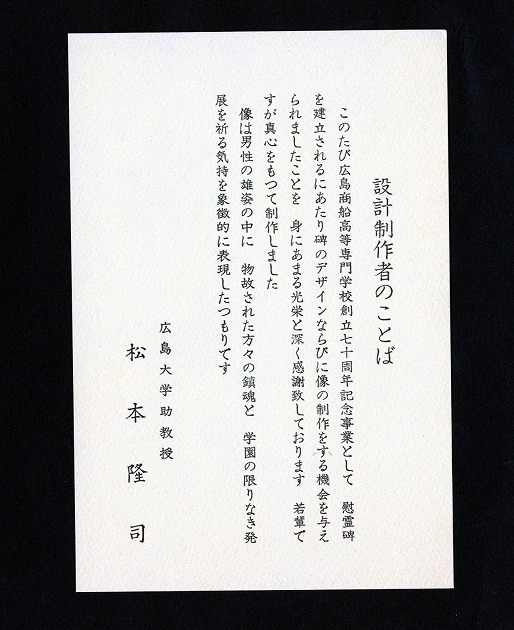 設計制作者のことば
このたび広島商船高等専門学校創立七十周年記念事業として　慰霊碑
を建立されるにあたり碑のデザインならびに像の制作をする機会を与え
られましたことを　身にあまる光栄と深く感謝致しております　若輩で
すが真心をもつて制作しました
像は男性の雄姿の中に　物故された方々の鎮魂と　学園の限りなき発
展を祈る気持を象徴的に表現したつもりです
広島大学助教授
松本隆司